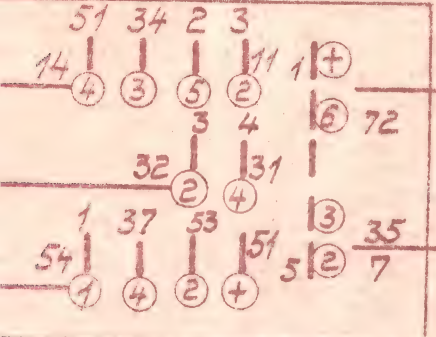 51 34 2 3
14 4 3 5 2 11 1 +
6 72
3 4
32 2 4 31
3
1 37 53 51 35
54 1 4 2 + 5 2 7